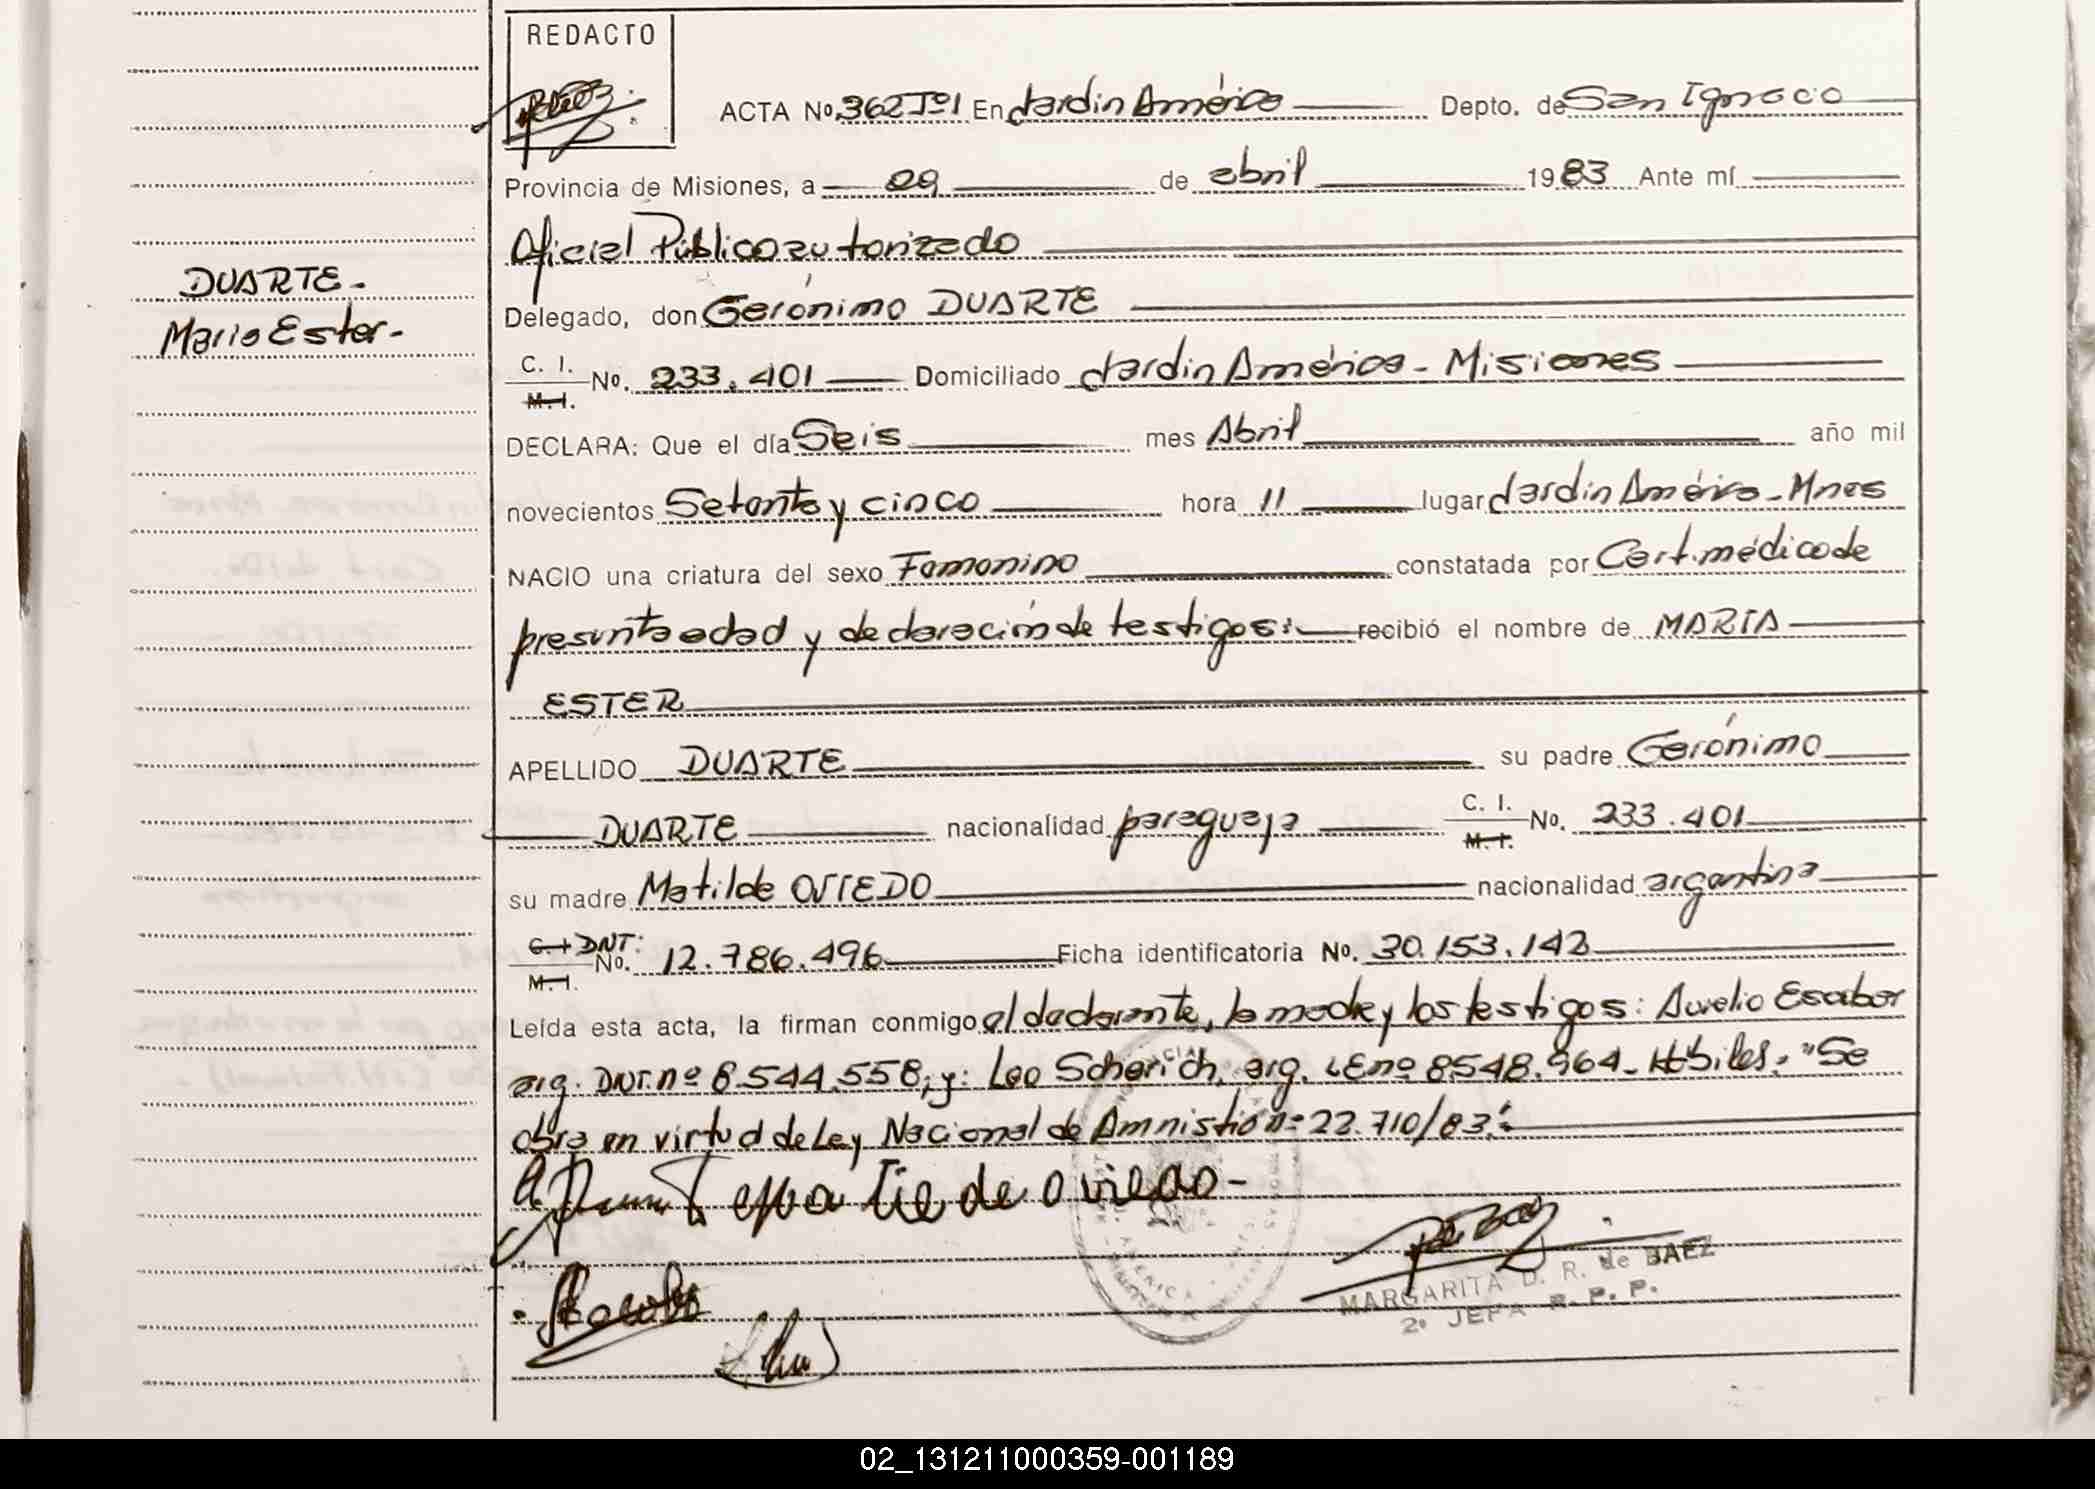 REDACTO
ACTA No. 362 Tº1 En Jardín América Depto. de San Ignacio
Provincia de Misiones, a 29 de abril 1983 Ante mí
Oficial Público autorizado
DUARTE.-
Delegado, don Gerónimo DUARTE
María Ester.-
C. I.
M. I. No. 233.401 Domiciliado Jardín América - Misiones
DECLARA: Que el día Seis mes Abril año mil
novecientos Setenta y cinco hora 11 lugar Jardín América - Mnes
NACIO una criatura del sexo Femenino constatada por Cert. médico de
presunta edad y declaración de testigos recibió el nombre de MARIA
ESTER
APELLIDO DUARTE su padre Gerónimo
DUARTE nacionalidad paraguaya C. I. M. I. No. 233.401
su madre Matilde OVIEDO nacionalidad argentina
C. I. DNI: M. I. No. 12.786.496 Ficha identificatoria No. 30.153.142
Leída esta acta, la firman conmigo el declarante, la madre y los testigos: Aurelio Escobar
arg. DNI. nº 8.544.558; y: Leo Scherich, arg. LE nº 8548.964 - Hábiles. "Se
obra en virtud de Ley Nacional de Amnistía nº 22.710/83.
de oviedo -
MARGARITA D. R. de BAEZ
2º JEFA R. P. P.
02_131211000359-001189